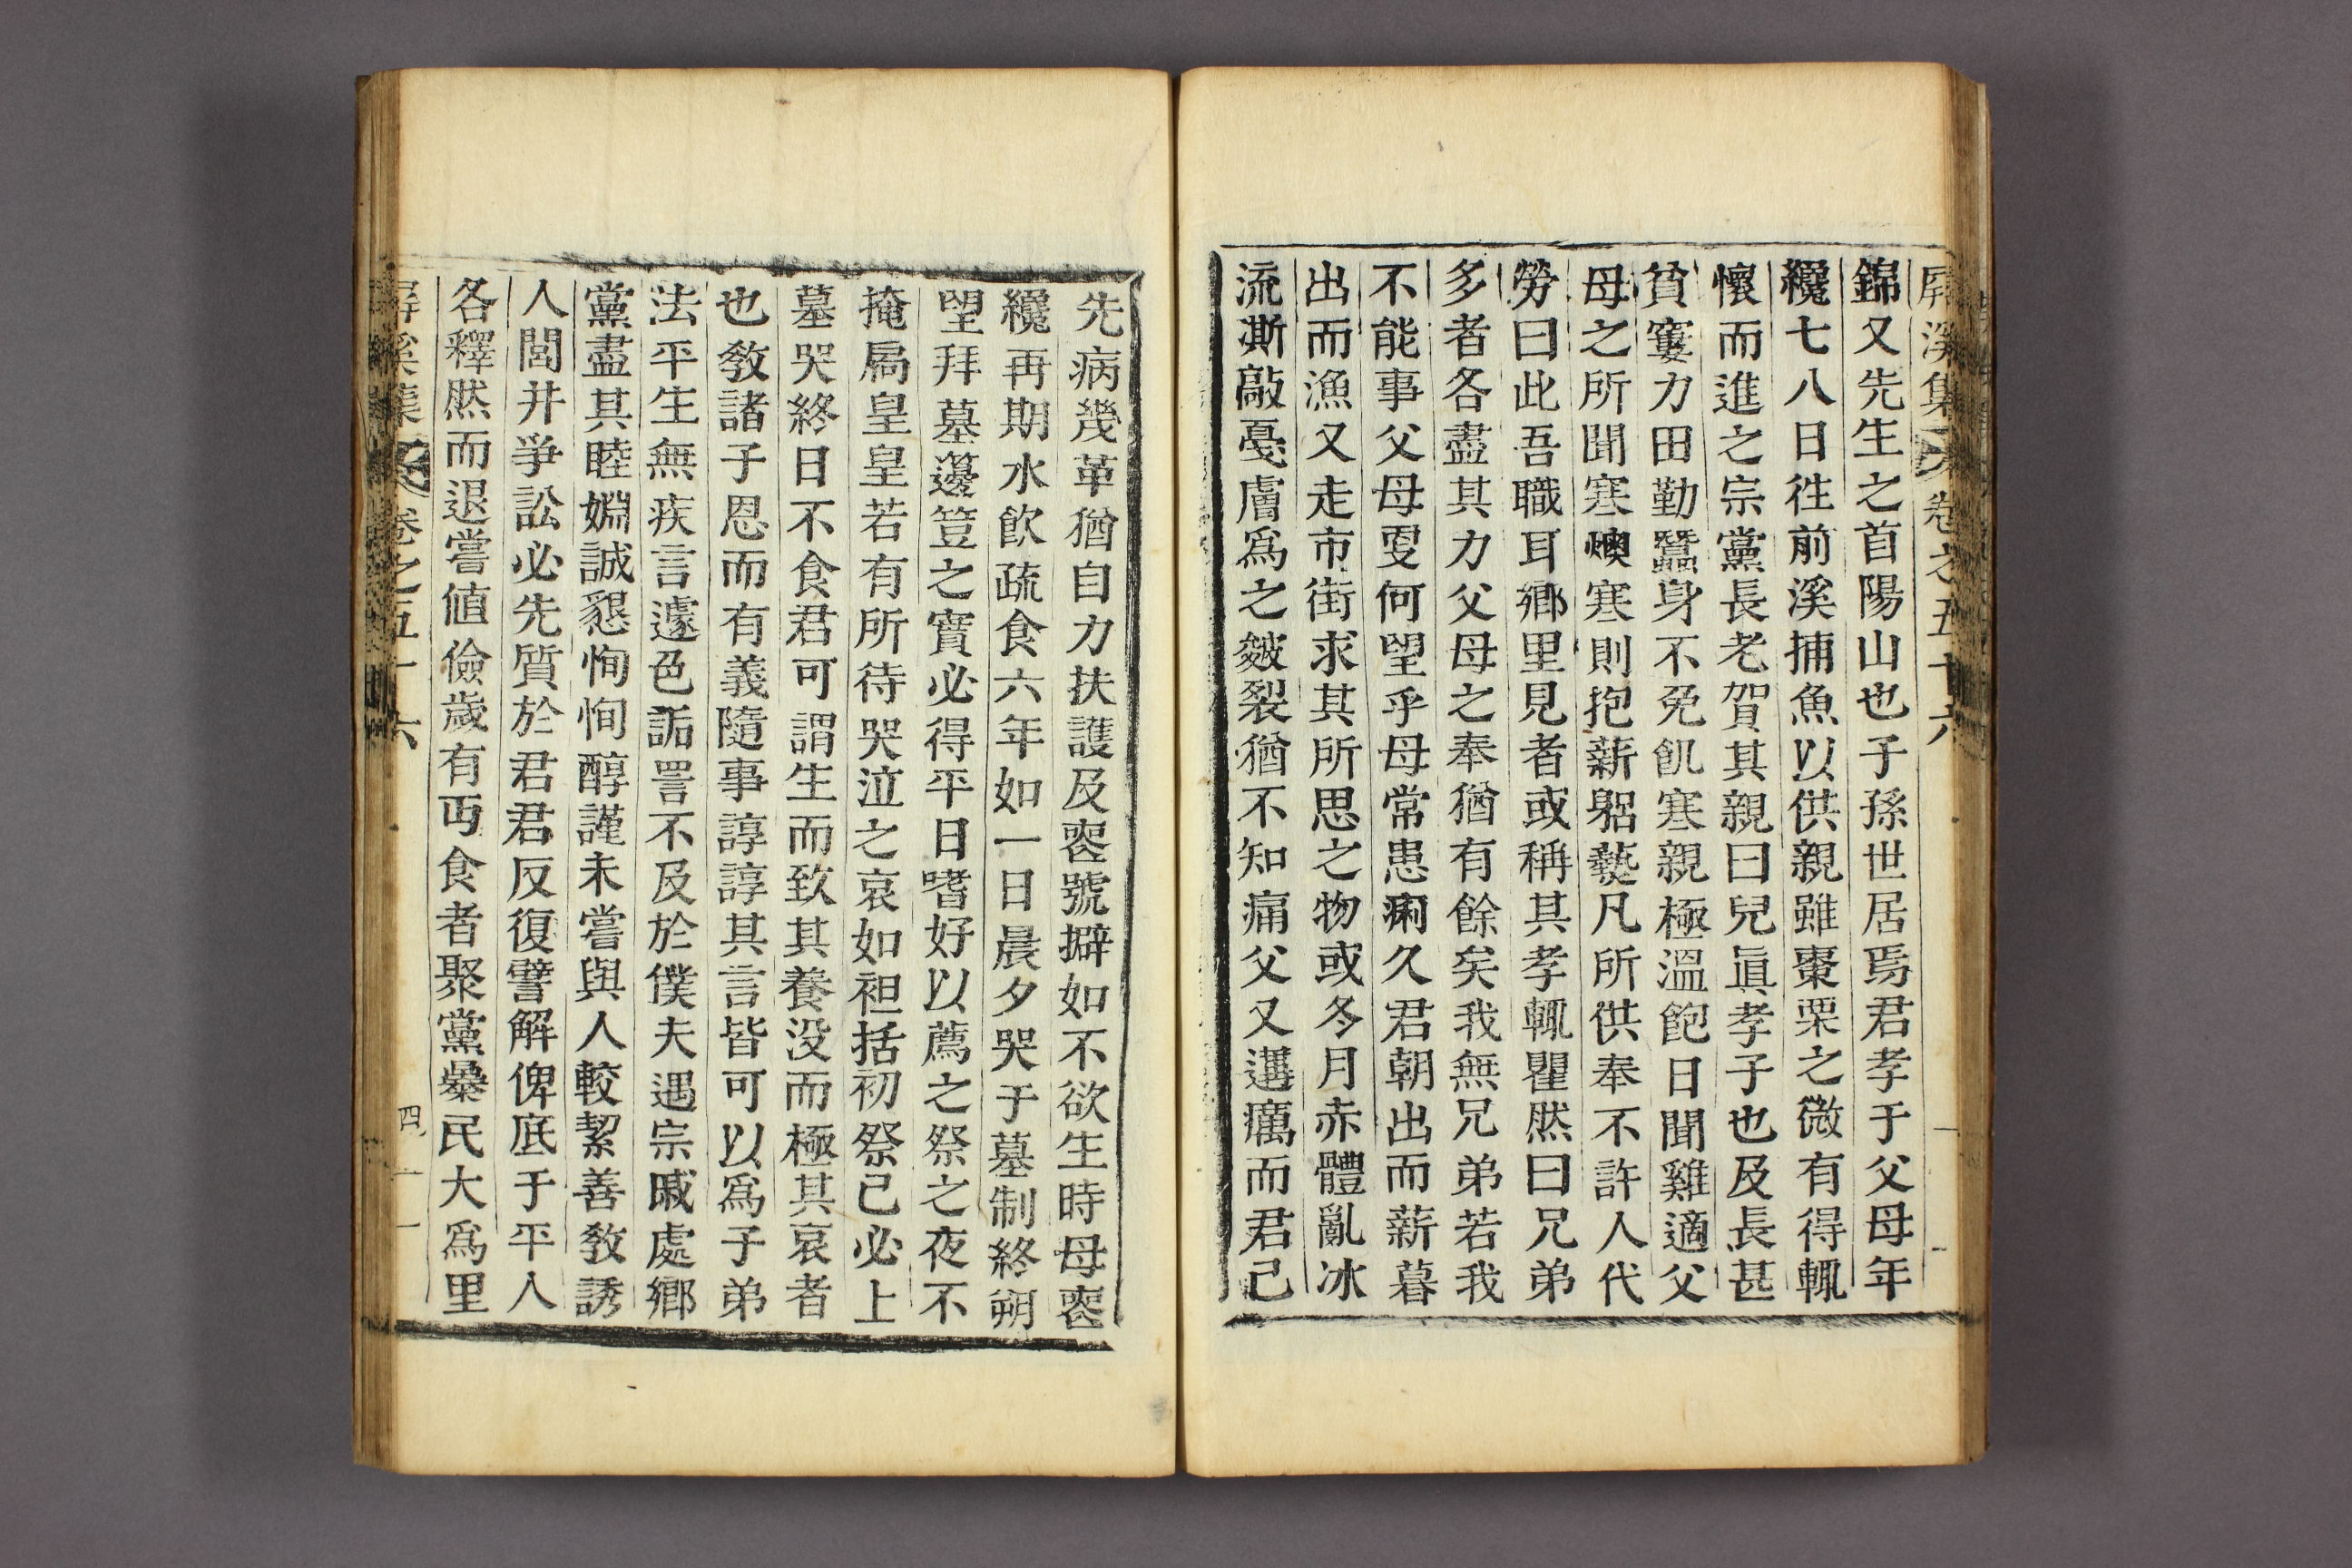 屛溪集 卷之五十六
錦又先生之首陽山也子孫世居焉君孝于父母年
纔七八日徃前溪捕魚以供親雖棗栗之微有得輒
懷而進之宗黨長老賀其親曰兒眞孝子也及長甚
貧窶力田勤蠶身不免飢寒親極溫飽日聞雞適父
母之所聞寒燠寒則抱薪躬爇凡所供奉不許人代
勞曰此吾職耳鄕里見者或稱其孝輒瞿然曰兄弟
多者各盡其力父母之奉猶有餘矣我無兄弟若我
不能事父母更何望乎母常患痢久君朝出而薪暮
出而漁又走市街求其所思之物或冬月赤體亂冰
流澌敲戞膚爲之皴裂猶不知痛父又遘癘而君已
先病幾革猶自力扶護及喪號擗如不欲生時母喪
纔再期水飮疏食六年如一日晨夕哭于墓制終朔
望拜墓籩豆之實必得平日嗜好以薦之祭之夜不
掩扃皇皇若有所待哭泣之哀如袒括初祭已必上
墓哭終日不食君可謂生而致其養没而極其哀者
也敎諸子恩而有義隨事諄諄其言皆可以爲子弟
法平生無疾言遽色詬詈不及於僕夫遇宗戚處鄕
黨盡其睦婣誠懇恂恂醇謹未嘗與人較絜善敎誘
人閭井爭訟必先質於君君反復譬解俾底于平人
各釋然而退嘗値儉歲有丏食者聚黨㬥民大爲里
屛溪集 卷之五十六 四